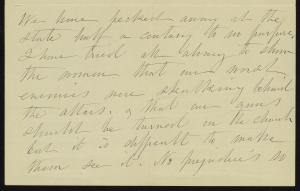 We have pecked away at the
state half a century to no purpose,
I have tried all along to show
the women that our worst
enemies were skulking behind
the altars, & that our guns
should be turned on the church
but it is difficult to make
them see it. No prejudices so